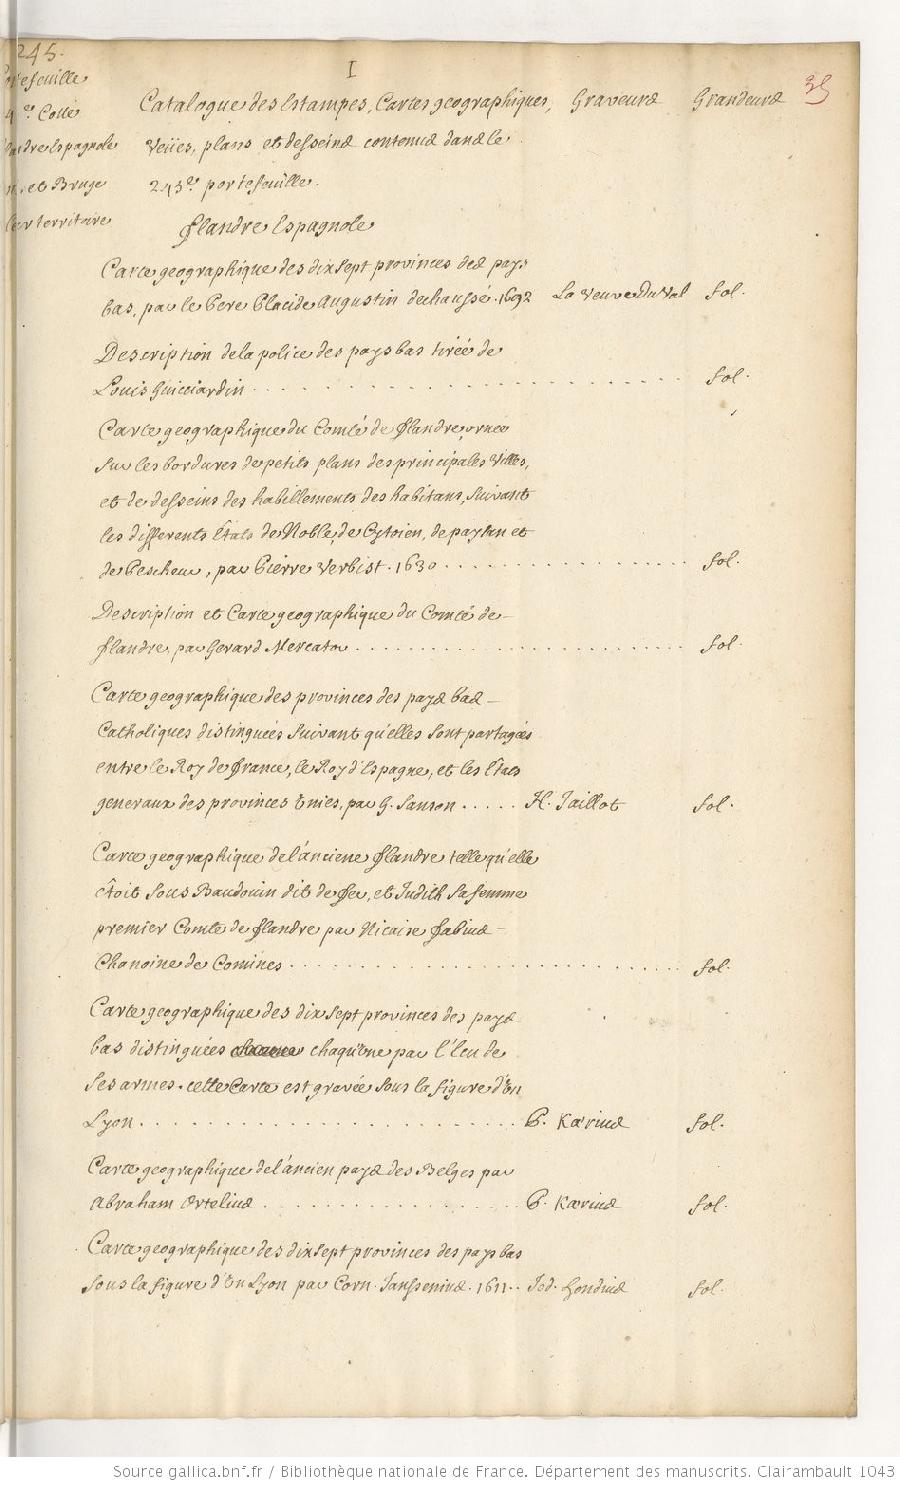 245.
I
35
Portefeuille
4.er Cotté
Flandre Espagnole
et Bruge
leur territoire
Catalogue des Estampes, Cartes geographiques, Graveurs Grandeurs
veües, plans et desseins contenus dans le
245.e portefeuille.
flandre Espagnole
Carte geographique des dix sept provinces des pays
bas, par le Pere Placide Augustin dechaussé. 1692 La veuve Du Val fol.
Description de la police des pays bas tirée de
Louis Guicciardin . . . . . fol.
Carte geographique du Comté de flandre, ornée
sur les bordures de petits plans des principales villes,
et de desseins des habillements des habitans, suivant
les differents Êtats de Noble, de Cytoien, de paysan et
de Pescheur, par Pierre Verbist. 1630 . . . . . fol.
Description et Carte geographique du Comté de
flandre, par Gerard Mercator . . . . . fol.
Carte geographique des provinces des pays bas
Catholiques distinguées suivant qu'elles sont partagées
entre le Roy de france, le Roy d'Espagne, et les Êtats
generaux des provinces Unies, par G. Sanson . . . . . H. Jaillot fol.
Carte geographique de l'anciene flandre telle qu'elle
êtoit sous Baudouin dit de fer, et Judith sa femme
premier Comte de flandre par Nicaire fabius
Chanoine de Comines . . . . . fol.
Carte geographique des dix sept provinces des pays
bas distinguées chaqu'une par l'Ecu de
ses armes. cette Carte est gravée sous la figure d'Un
Lyon . . . . . P. Kærius fol.
Carte geographique de l'ancien pays des Belges par
Abraham Ortelius . . . . . P. Kærius fol.
Carte geographique des dix sept provinces des pays bas
sous la figure d'Un Lyon par Corn. Janssenius. 1611 . . Jod. Hondius fol.
Source gallica.bnf.fr / Bibliothèque nationale de France. Département des manuscrits. Clairambault 1043